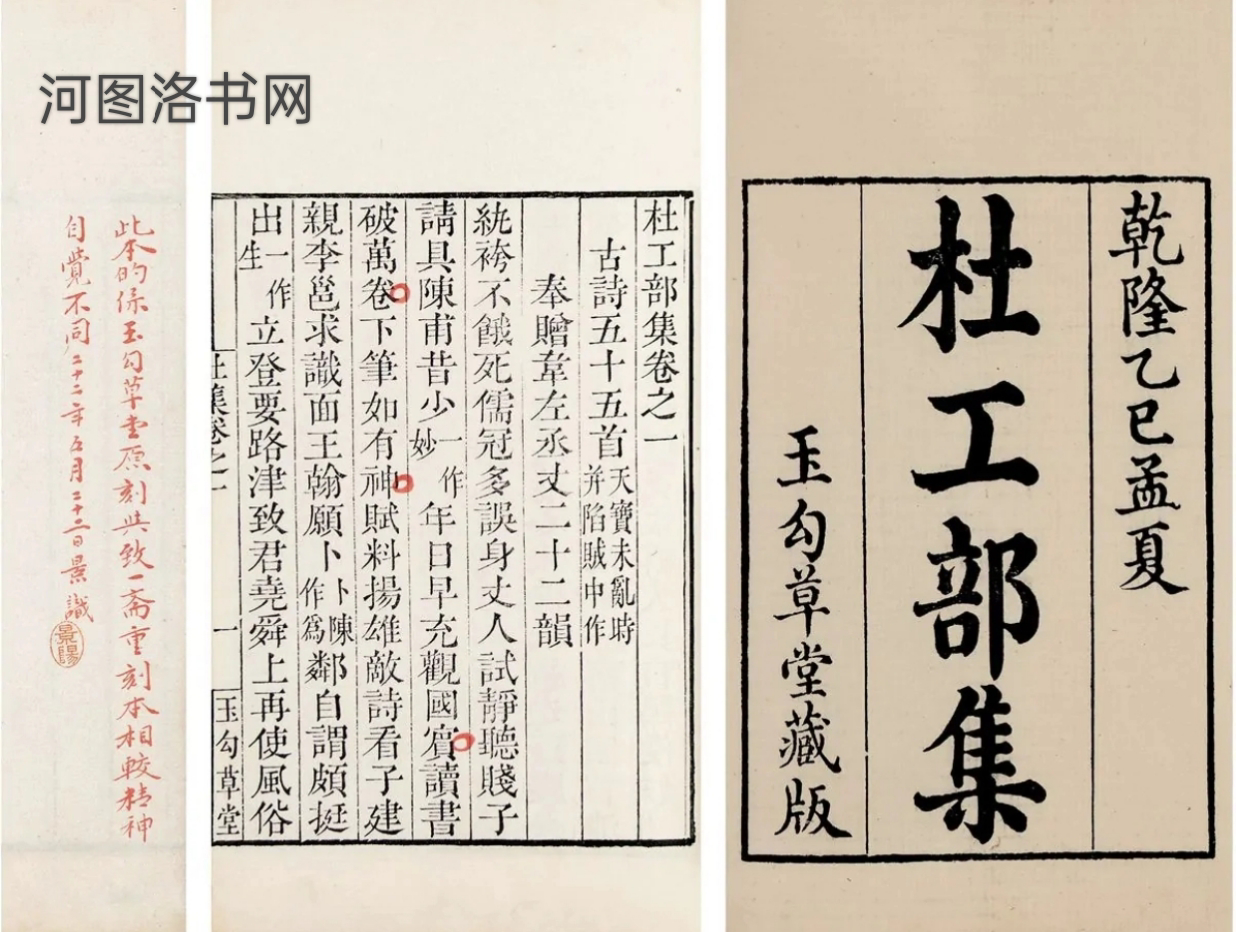 河图洛书网
乾隆乙巳孟夏
杜工部集
玉勾草堂藏版
杜工部集卷之一
古詩五十五首 天寶未亂時并陷賊中作
奉贈韋左丞丈二十二韻
紈袴不餓死儒冠多誤身丈人試靜聽賤子
請具陳甫昔少一作妙年日早充觀國賓讀書
破萬卷下筆如有神賦料揚雄敵詩看子建
親李邕求識面王翰願卜卜陳作為鄰自謂頗挺
出一作生立登要路津致君堯舜上再使風俗
杜集卷之一 一 玉勾草堂
此本的係玉勾草堂原刻與致一齋重刻本相較精神
自覺不同二十二年五月二十二日景識
景